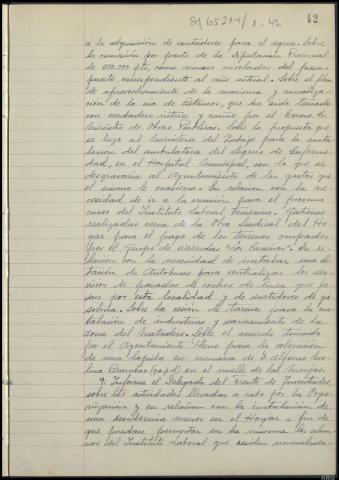 89 G5214/1-42
42
a la adquisición de contadores para el agua. Sobre
la concesión por parte de la Diputación Provincial
de 600.000 pts, como recurso nivelador del presu-
puesto correspondiente al año actual. Sobre el plan
de aprovechamiento de la marisma y canaliza-
ción de la ría de Betanzos, que ha sido tomado
con verdadero interés y cariño por el Excmo. Sr.
Ministro de Obras Públicas. Sobre la propuesta que
se hizo al Ministerio del Trabajo para la insta-
lación del ambulatorio del Seguro de Enferme-
dad, en el Hospital Municipal, con lo que se
desgravaría al Ayuntamiento de los gastos que
el mismo le ocasiona. En relación con la ne-
cesidad de ir a la creación para el próximo
curso del Instituto Laboral femenino. Gestiones
realizadas cerca de la Obra Sindical del Ho-
gar para el pago de los terrenos ocupados
por el Grupo de viviendas "Los Caneiros". En re-
lación con la necesidad de instalar una es-
tación de Autobuses para centralizar los ser-
vicios de paradas de coches de línea que pa-
san por esta localidad y de surtidores de ga-
solina. Sobre la cesión de terrenos para la ins-
talación de industrias y saneamiento de la
zona del Matadero. Sobre el acuerdo tomado
por el Ayuntamiento Pleno para la colocación
de una lápida en memoria de D. Alfonso Mo-
lina Brandao (q.e.p.d) en el muelle de las Monjas.
9. Informa el Delegado del Frente de Juventudes,
sobre las actividades llevadas a cabo por la Orga-
nización y en relación con la instalación de
una residencia menor en el Hogar a fin de
que puedan pernoctar en la misma los alum-
nos del Instituto Laboral que residen normalmen-